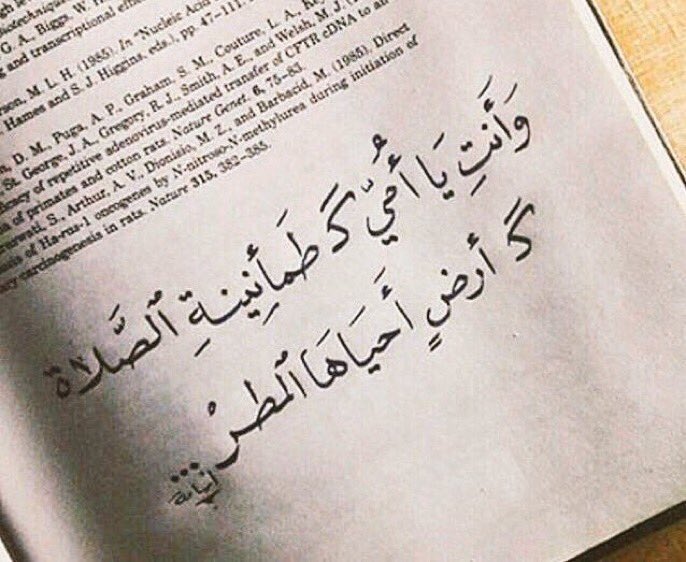 G. A., Biggs, W. H
g and transcriptional effe
rson, M. L. H. (1985). In "Nucleic Acid
Hames and S. J. Higgins, eds.), pp. 47–111.
, D. M., Puga, A. P., Graham, S. M., Couture, L. A., K
St. George, J. A., Gregory, R. J., Smith, A. E., and Welsh, M. J. (1
cacy of repetitive adenovirus-mediated transfer of CFTR cDNA to ai
of primates and cotton rats. Nature Genet. 6, 75–83.
S., Arthur, A. V., Dionisio, M. Z., and Barbacid, M. (1985). Direct
of Ha-ras-1 oncogenes by N-nitroso-N-methylurea during initiation of
carcinogenesis in rats. Nature 315, 382–385.
وَأَنتِ يَا أُمّي كَـ طَمَأنِينةِ ٱلصَّلَاة
كَـ أرضٍ أَحيَاهَا ٱلمطرْ...